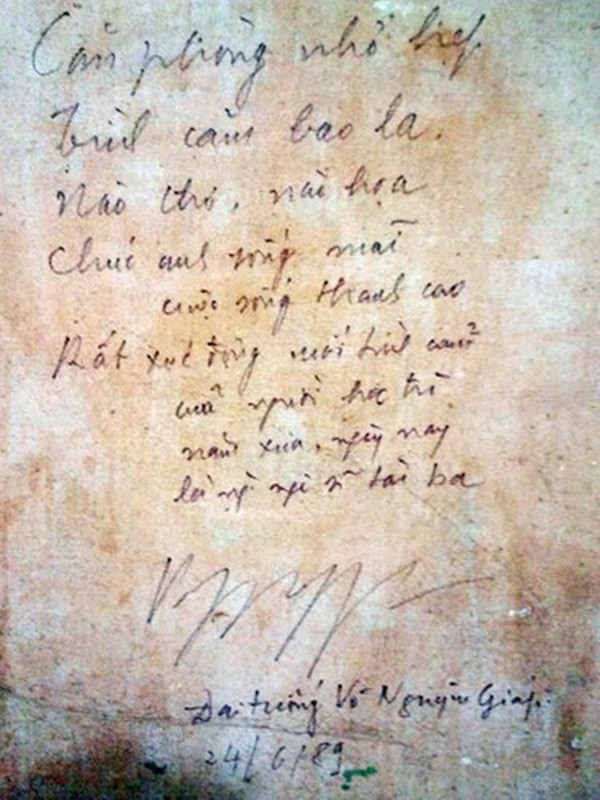 Căn phòng nhỏ hẹp
Tình cảm bao la.
Nào thơ, nào họa
Chúc anh sống mãi
cuộc sống thanh cao
Rất xúc động mối tình cảm
của người học trò
năm xưa, ngày nay
là nghệ sĩ tài ba
Đại tướng Võ Nguyên Giáp
24/6/89